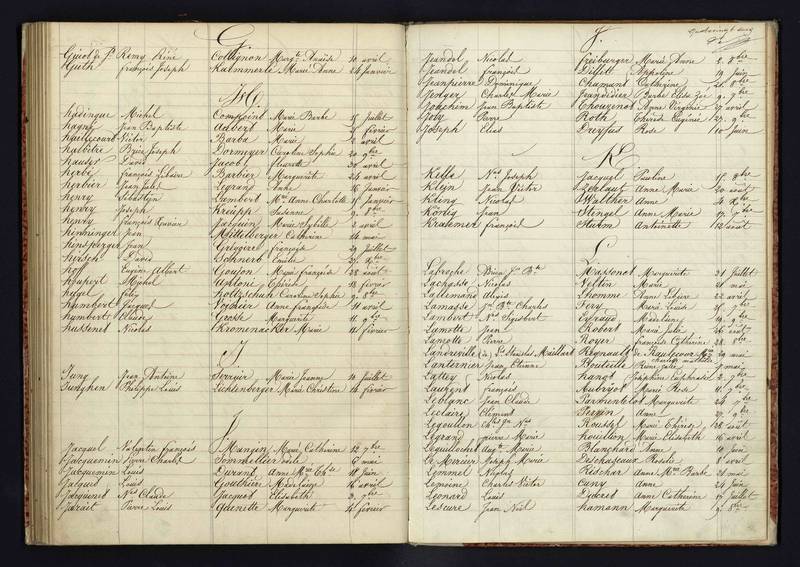 G
Guiot de P. Remy Réné Collignon Marg.te Anaïse 10 avril
Guth françois Joseph Kalmmerle Marie Anne 24 Janvier
H
hadingue Michel Compoint Marie Barbe 15 Juillet
hagny Jean Baptiste Aubert Marie 5 février
haillecourt Victor Barba Marie 2 avril
halbitre Brice Joseph Dormeyer Caroline Sophie 20 9.bre
hauser David Jacob fleurette 30 avril
herbé françois hilaire Barbier Marguerite 24 avril
herbier Jean Jules Legrand Anne 16 Janvier
henry Sébastien Lambert M.ie Anne Charlotte 11 Janvier
henry Joseph Kreüpp Susanne 9 8.bre
henry françois Xavier Jacquin Marie Sybille 2 avril
henninger Jean Mittelberger Catherine 14 mai
hensperger Jean Grégoire françoise 29 Juillet
hirsch David Schnerb Emélie 27 9.bre
hoff Eugène Albert Goujon Marie françoise 28 août
Michel Antoine Thérèse 13 février
hugel Félix Holtzschuh Caroline Sophie 9 8.bre
humbert Jacques Voinier Anne françoise 11 avril
humbert Claude Grosse Marguerite 11 9.bre
hussenot Nicolas Kromenacker Marie 11 février
I
Jung Jean Antoine Ferrier Marie Jeanne 10 Juillet
Junghen Philippe Louis Lichtenberger Marie Christine 14 février
J
Jacquel Valentin françois Mangin Marie Catherine 12 7.bre
Jacquemin Pierre Charles Sommeillier Odile 6 mai
Jacquemin Louis Durand Anne M.ie Th.se 18 Juin
Jalquel Louis Gouthier Madeleine 16 avril
Jacquenot N.as Claude Jacquot Elisabeth 3 9.bre
Jarait Pierre Louis Guenette Marguerite 4 février
J
Jeandel Nicolas freiburger Marie Anne 2 8.bre
Jeandel françois Diffut Appoline 19 Juin
Jeanpierre Dominique Chamant Catherine 21 8.bre
Jenger Charles Marie Gandidier Barbe Elise Zoé 9 7.bre
Joachim Jean Baptiste Chouzenot Anne Virginie 27 avril
Joly Pierre Roth Thérèse Eugénie 27 9.bre
Joseph Elias Dreyfus Rose 10 Juin
K
Kelle N.as Joseph Jacquel Pauline 15 9.bre
Klein Jean Victor Zehlaut Anne Marie 20 août
Kling Nicolas Walther Anne 4 8.bre
König Jean Stingel Anne Marie 17 7.bre
Kraemer françois Hurm Antoinette 12 août
L
Labroche J.n B.te Massenet Marguerite 21 Juillet
Lachasse Nicolas Veltin Marie 21 mai
Lallemand Aloyse Lhomme Anne Libaire 22 avril
Lambert J.n B.te Charles Fery Marie Louise 15 7.bre
Lambert N.as Sigisbert Effroid Madeleine 19 9.bre
Lamotte Jean Robert Marie Julie 26 août
Lamotte Pierre Royer françoise Catherine 28 8.bre
Landreville (de) L.s Stanislas Maillart Regnault de Raulecour 29 mai
Lanternier Jean Etienne Bouteille Reine Julie 7 mai
Lattey Nicolas Hanot Joséphine Euphrasie 2 7.bre
Laurent françois Aubriot Marie Rose 11 7.bre
Leblanc Jean Claude Parmentelot Marguerite 24 7.bre
Leclaire Clément Pierzin Anne 27 9.bre
Legoullon Ch.les J.n N.as Roussel Marie Thérèse 28 août
Legrand pierre Marie Rouillon Marie Elisabeth 16 avril
Leguillochet Aug.te Marie Blanchard Anne 10 Juin
Le Mercier Joseph Marie Deschazeaux Rosalie 1.er avril
Lemmel Nicolas Rischar Anne M.ie Barbe 21 mai
Lemoine Charles Victor Cuny Anne 24 Juin
Léonard Louis Anne Catherine 17 Juillet
Lescure Jean Noël hamann Marguerite 19 8.bre